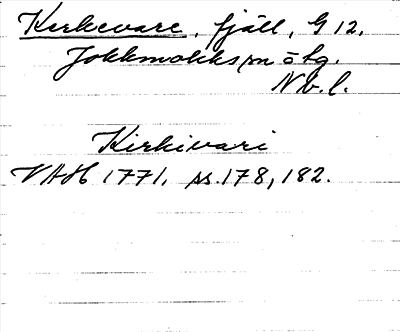 Kerkevare, fjäll, G 12.
Jokkmokks sn ö lg.
Nb. l.
Kirkivari
VAH 1771, ss. 178, 182.